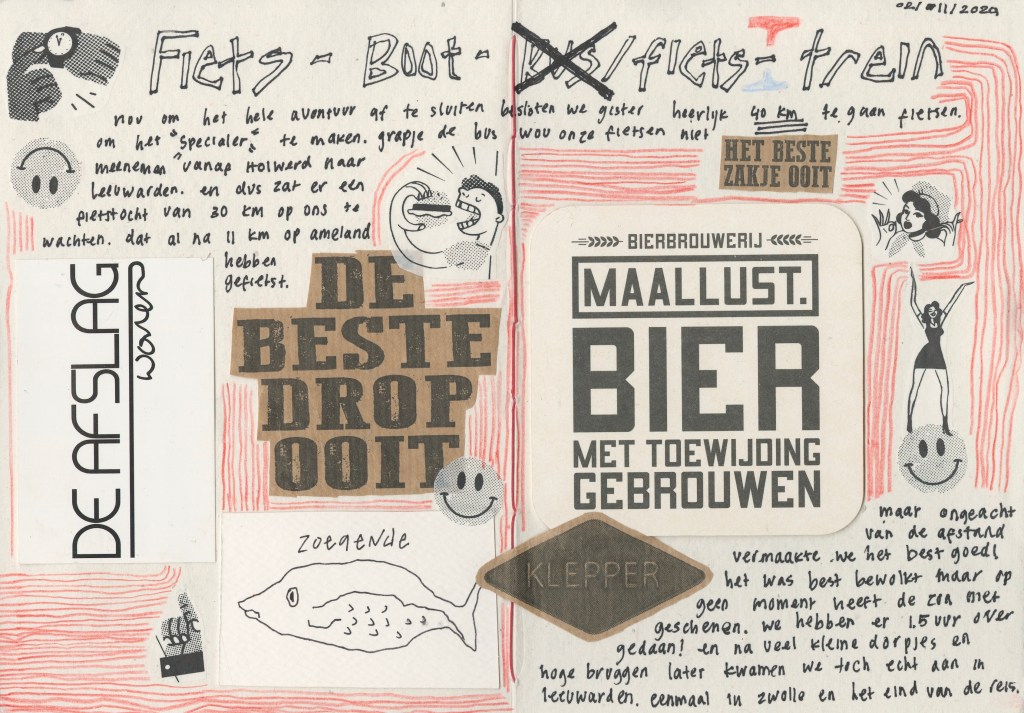 02/11/2020
Fiets - Boot - Bus/fiets - trein
nou om het hele avontuur af te sluiten besloten we gister heerlijk 40 km te gaan fietsen.
om het "specialer" te maken. grapje de bus wou onze fietsen niet
meenemen vanaf Holwerd naar
Leeuwarden. en dus zat er een
fietstocht van 30 km op ons te
wachten. dat al na 11 km op ameland
hebben
gefietst.
HET BESTE
ZAKJE OOIT
DE AFSLAG
waren
DE
BESTE
DROP
OOIT
BIERBROUWERIJ
MAALLUST.
BIER
MET TOEWIJDING
GEBROUWEN
zoegende
KLEPPER
maar ongeacht
van de afstand
vermaakte we het best goed!
het was best bewolkt maar op
geen moment heeft de zon niet
geschenen. we hebben er 1.5 uur over
gedaan! en na veel kleine dorpjes en
hoge bruggen later kwamen we toch echt aan in
leeuwarden. eenmaal in zwolle en het eind van de reis.